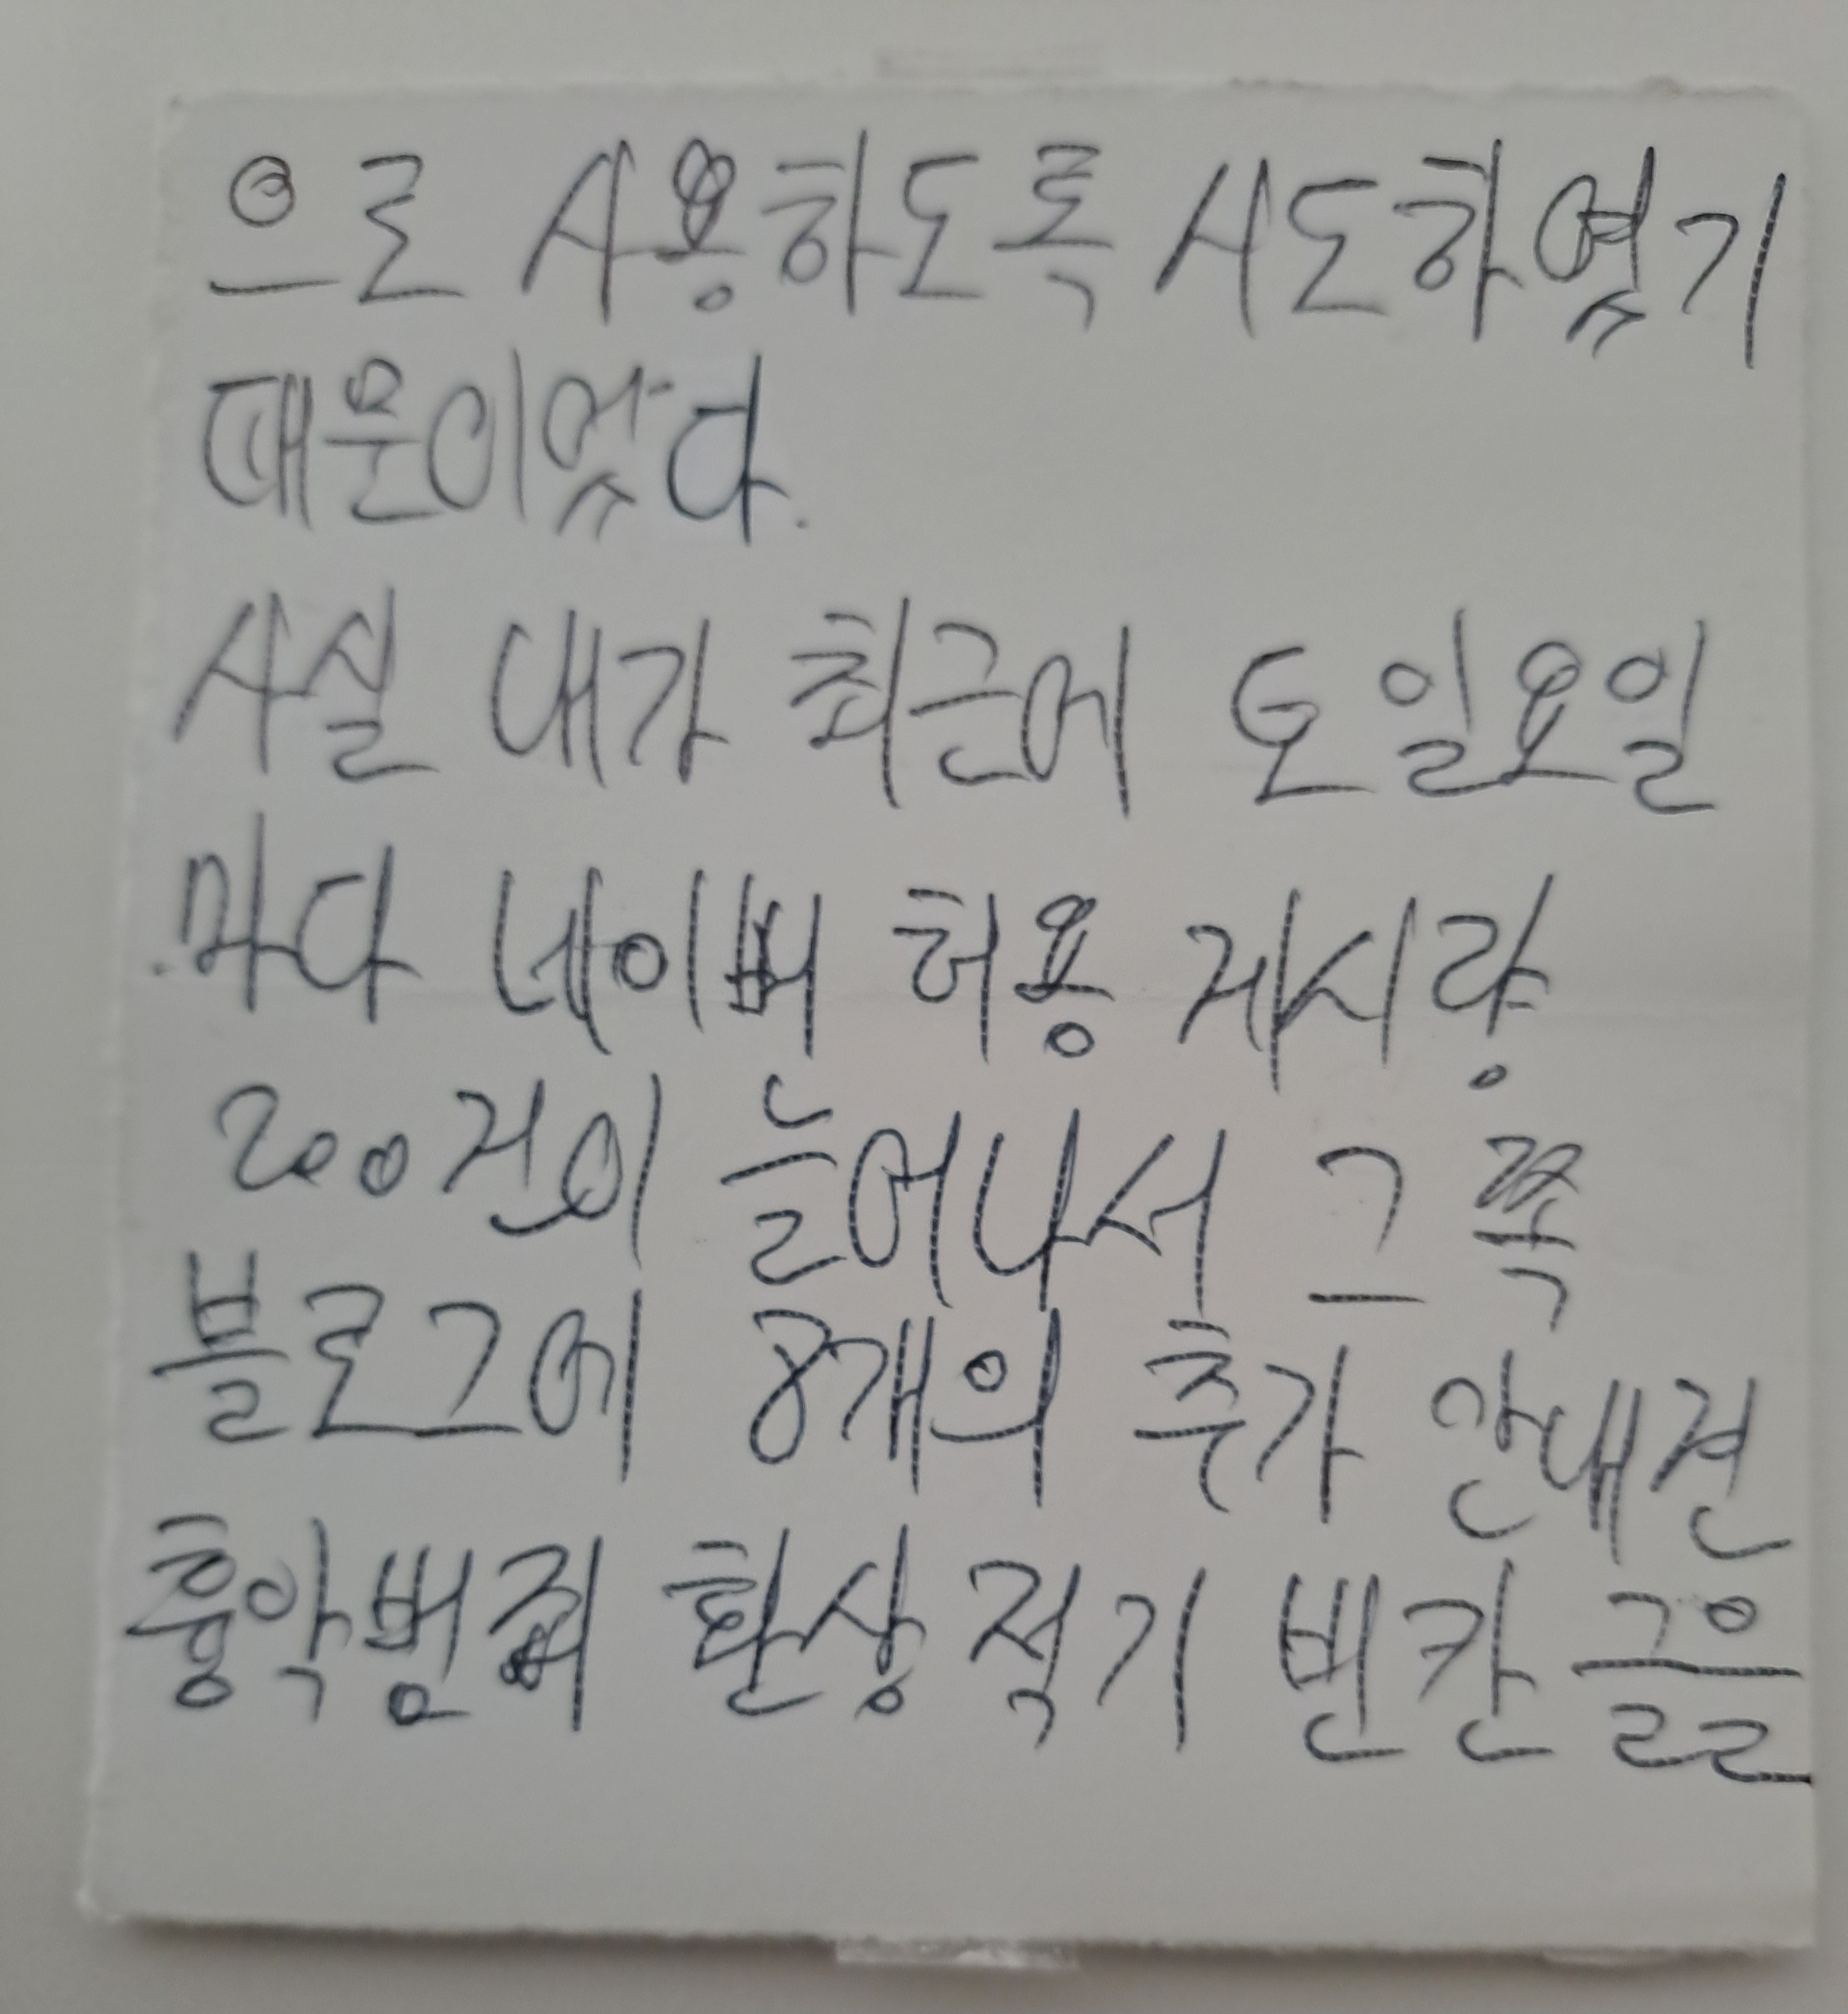 으로 사용하도록 시도하였기
때문이었다.
사실 내가 최근에 토일요일
마다 네이버 허용 게시량
200건이 늘어나서 그 쪽
블로그에 8개의 추가 안내건
흉악범죄 환상적기 빈칸 글을